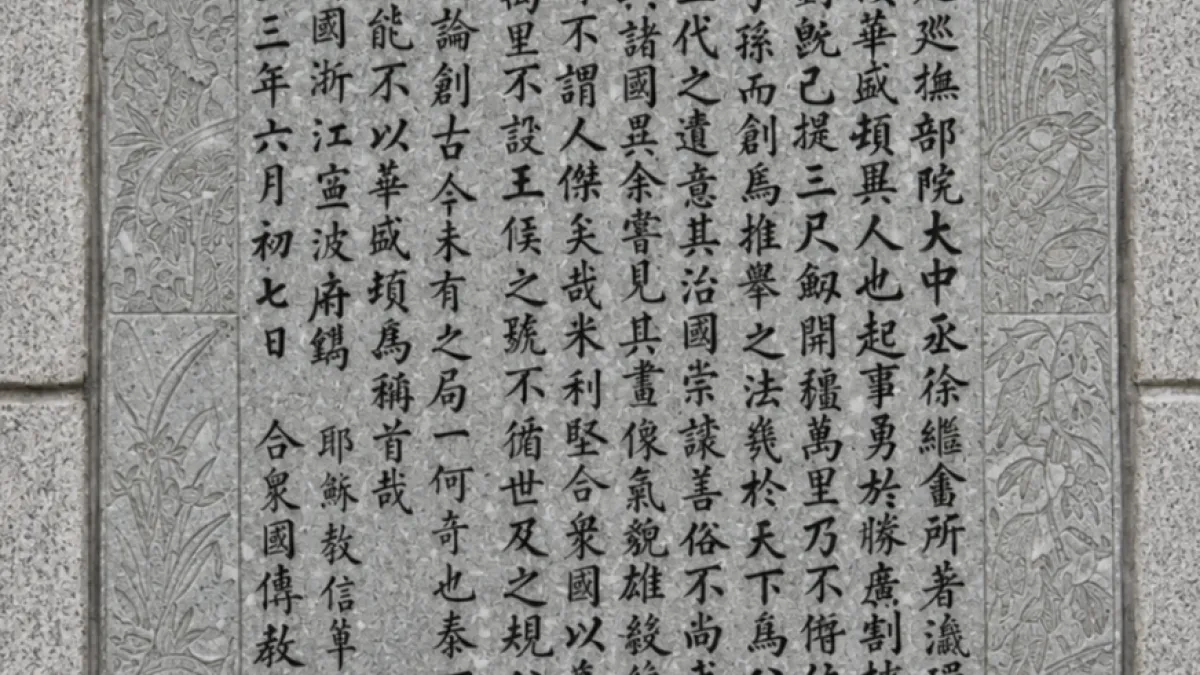 廵撫部院大中丞徐繼畬所著瀛
華盛頓異人也起事勇於勝廣割
既已提三尺劔開疆萬里乃不僭
孫而創爲推舉之法幾於天下爲
代之遺意其治國崇讓善俗不尚
諸國異余嘗見其畫像氣貌雄毅
不謂人傑矣哉米利堅合衆國以
里不設王侯之號不循世及之規
論創古今未有之局一何奇也泰
能不以華盛頓爲稱首哉
國浙江寧波府鐫 耶穌教信軰
三年六月初七日 合衆國傳教